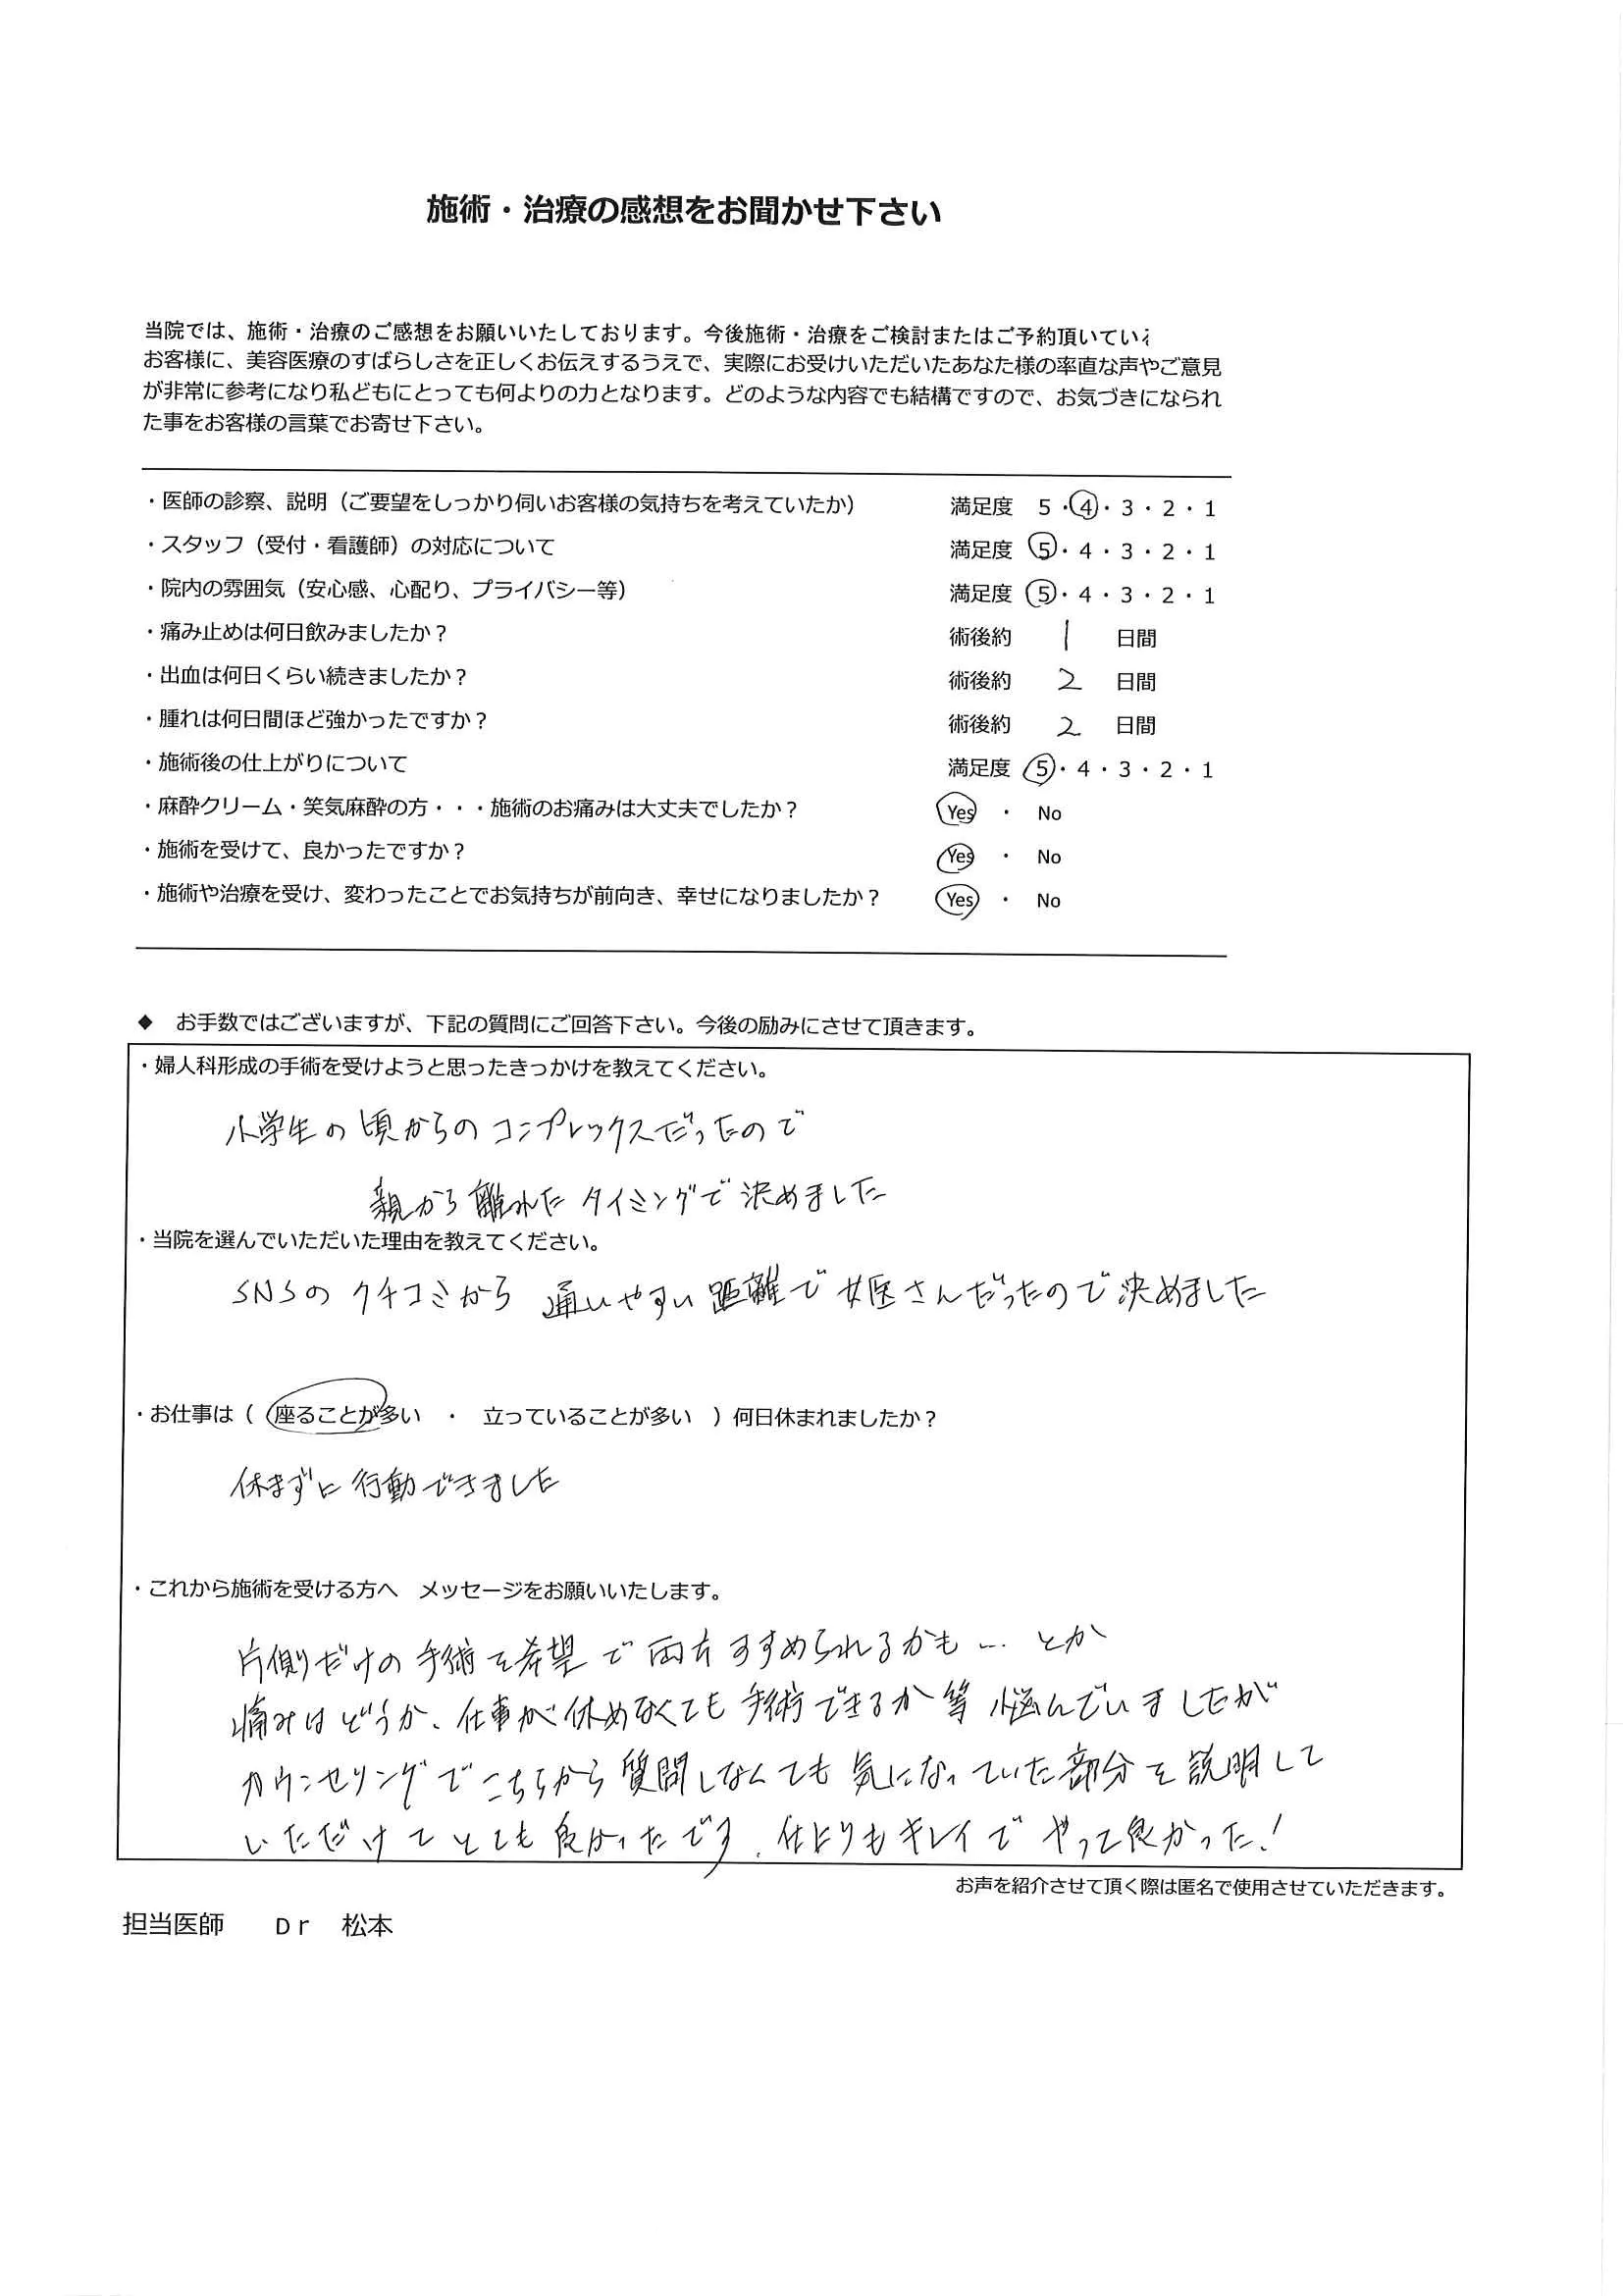 施術・治療の感想をお聞かせ下さい
当院では、施術・治療のご感想をお願いいたしております。今後施術・治療をご検討またはご予約頂いている
お客様に、美容医療のすばらしさを正しくお伝えするうえで、実際にお受けいただいたあなた様の率直な声やご意見
が非常に参考になり私どもにとっても何よりの力となります。どのような内容でも結構ですので、お気づきになられ
た事をお客様の言葉でお寄せ下さい。
・医師の診察、説明（ご要望をしっかり伺いお客様の気持ちを考えていたか） 満足度 5・4・3・2・1
・スタッフ（受付・看護師）の対応について 満足度 5・4・3・2・1
・院内の雰囲気（安心感、心配り、プライバシー等） 満足度 5・4・3・2・1
・痛み止めは何日飲みましたか？ 術後約 1 日間
・出血は何日くらい続きましたか？ 術後約 2 日間
・腫れは何日間ほど強かったですか？ 術後約 2 日間
・施術後の仕上がりについて 満足度 5・4・3・2・1
・麻酔クリーム・笑気麻酔の方・・・施術のお痛みは大丈夫でしたか？ Yes ・ No
・施術を受けて、良かったですか？ Yes ・ No
・施術や治療を受け、変わったことでお気持ちが前向き、幸せになりましたか？ Yes ・ No
◆ お手数ではございますが、下記の質問にご回答下さい。今後の励みにさせて頂きます。
・婦人科形成の手術を受けようと思ったきっかけを教えてください。
小学生の頃からのコンプレックスだったので
親から離れたタイミングで決めました
・当院を選んでいただいた理由を教えてください。
SNSのクチコミから 通いやすい距離で女医さんだったので決めました
・お仕事は（ 座ることが多い ・ 立っていることが多い ）何日休まれましたか？
休まずに行動できました
・これから施術を受ける方へ メッセージをお願いいたします。
片側だけの手術を希望で両方すすめられるかも…とか
痛みはどうか、仕事が休めなくても手術できるか等悩んでいましたが
カウンセリングでこちらから質問しなくても気になっていた部分を説明して
いただけてとても良かったです。仕上りもキレイでやって良かった！
お声を紹介させて頂く際は匿名で使用させていただきます。
担当医師 Dr 松本